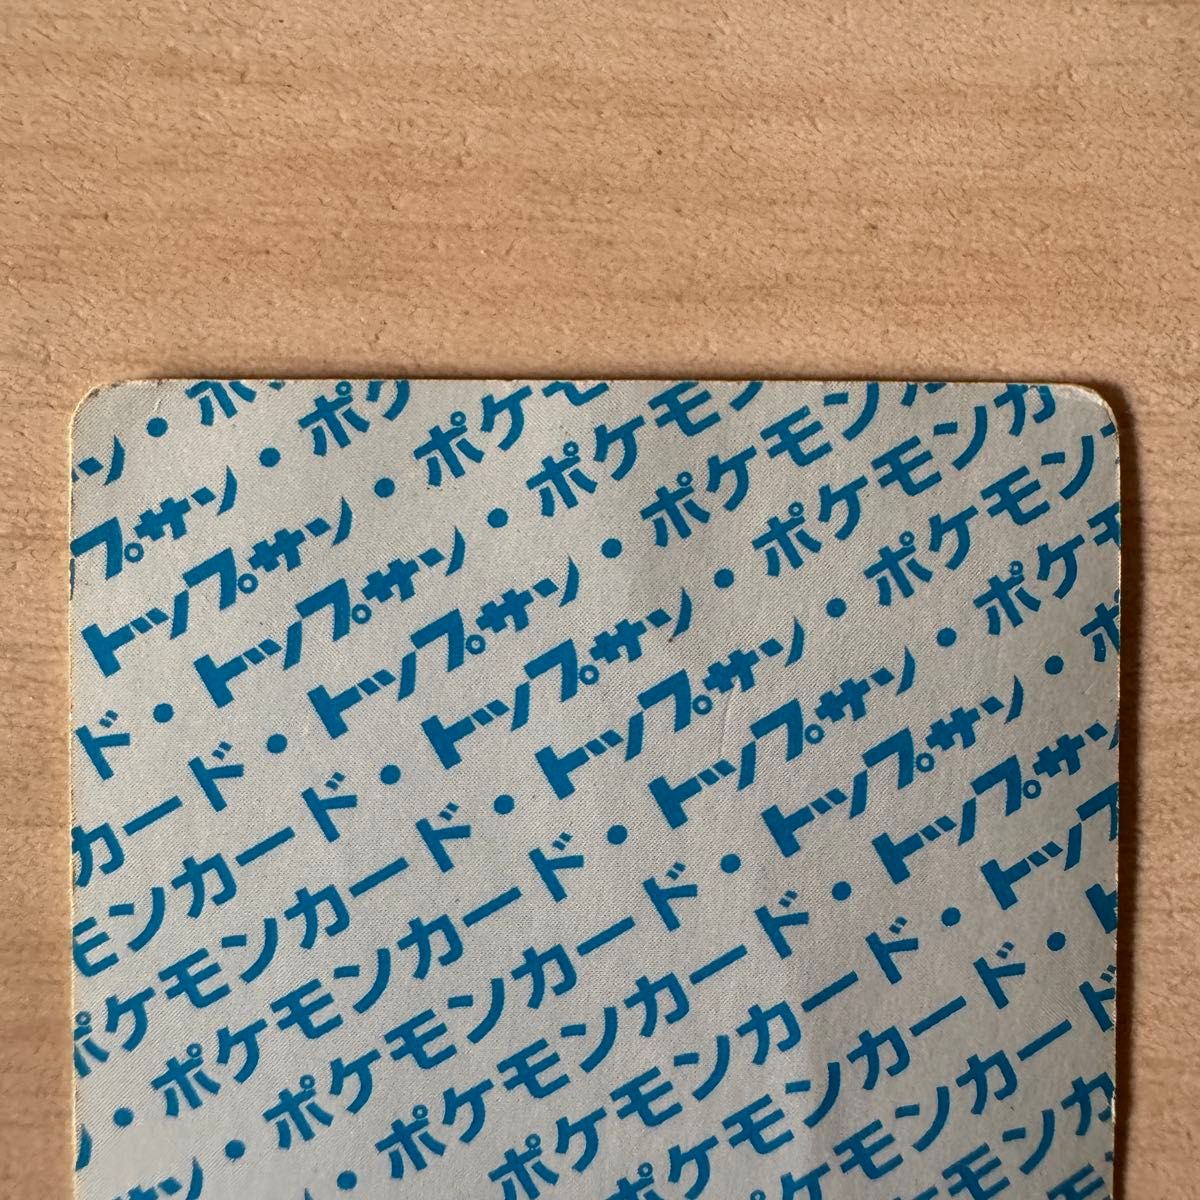 ン・ポ
プサン・ポケ
トップサン・ポケモ
ド・トップサン・ポケモン
カード・トップサン・ポケモンカ
モンカード・トップサン・ポケモンカ
ポケモンカード・トップサン・ポケモン
・ポケモンカード・トップサン・ポケモ
ン・ポケモンカード・トップサン・ポ
サン・ポケモンカード・トップサン
・ポケモンカード・トップ
ポケモンカード・ト
ポケモンカード
ケモンカ
モン